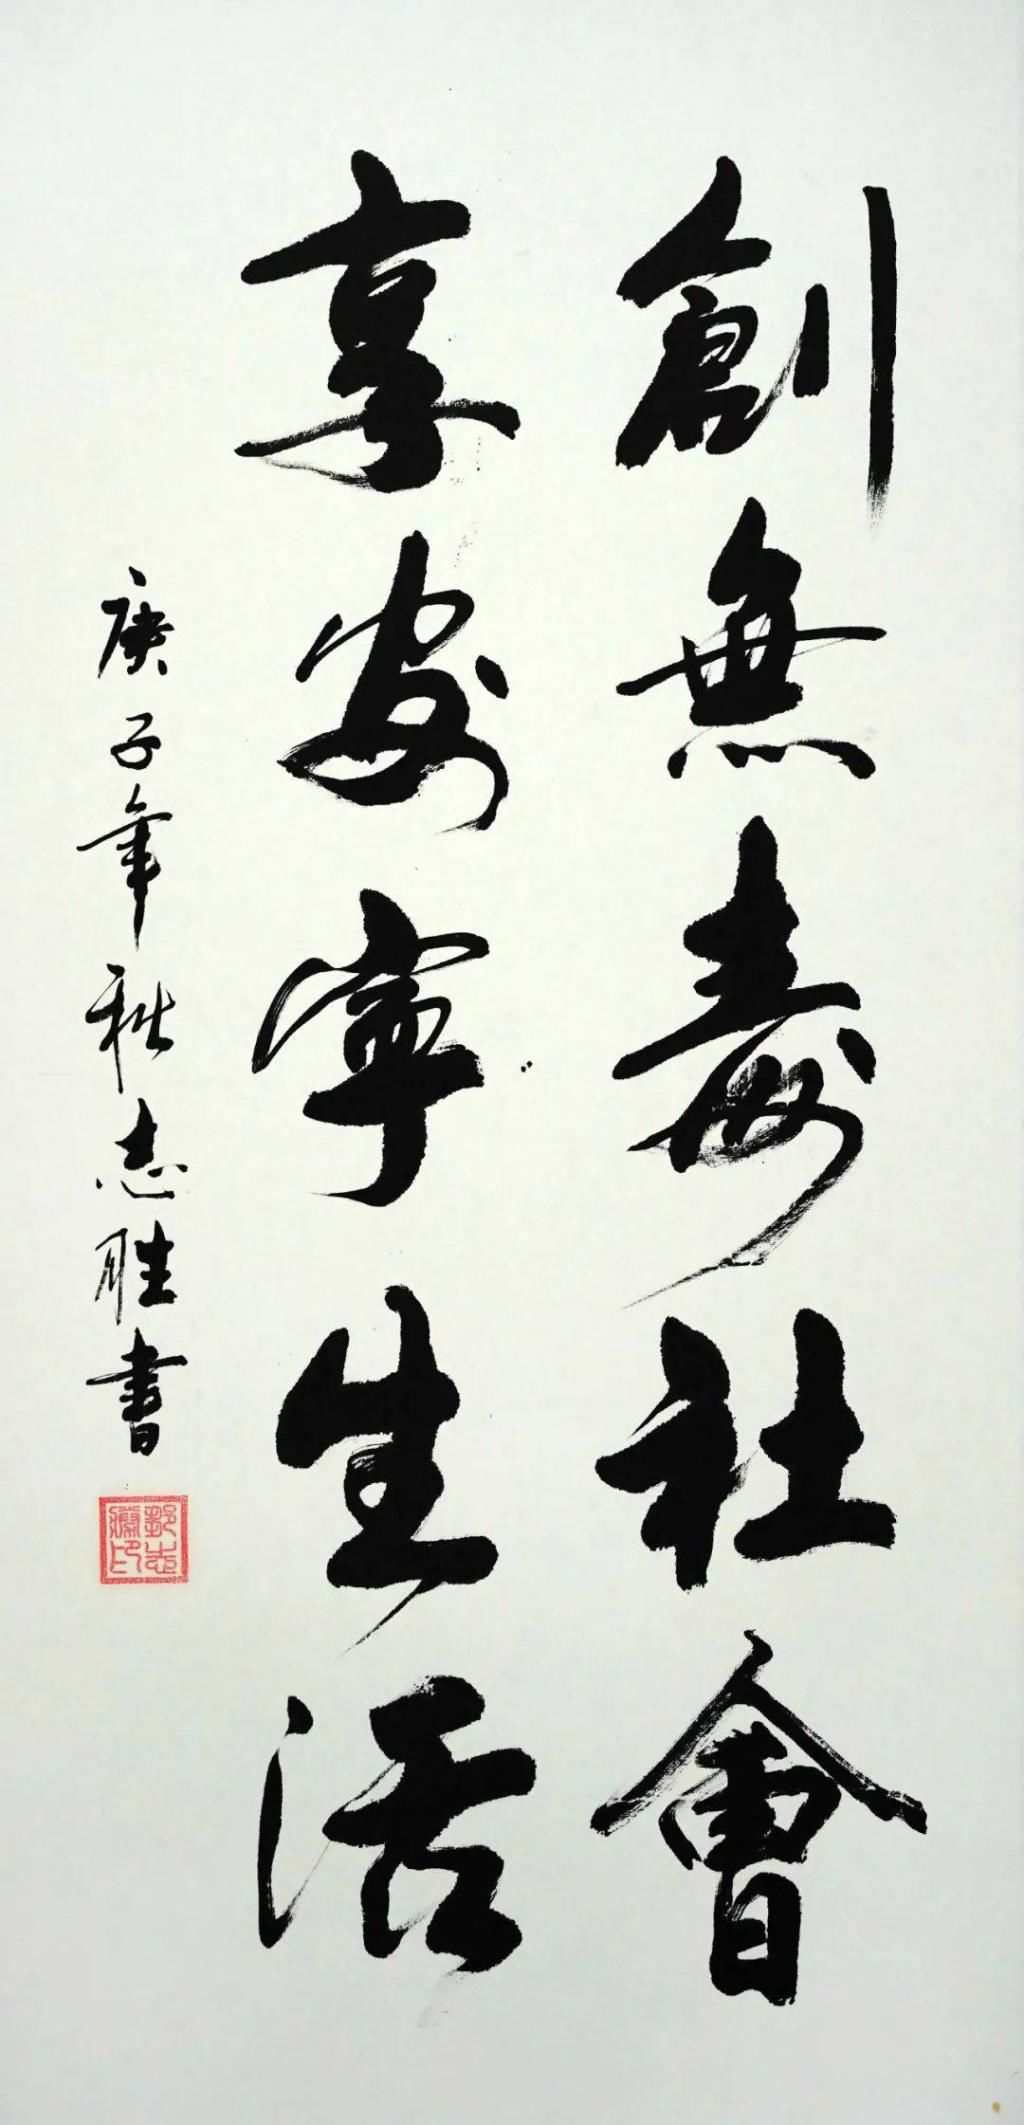 創無毒社會
享安寧生活
庚子年秋志胜書
郭志勝印